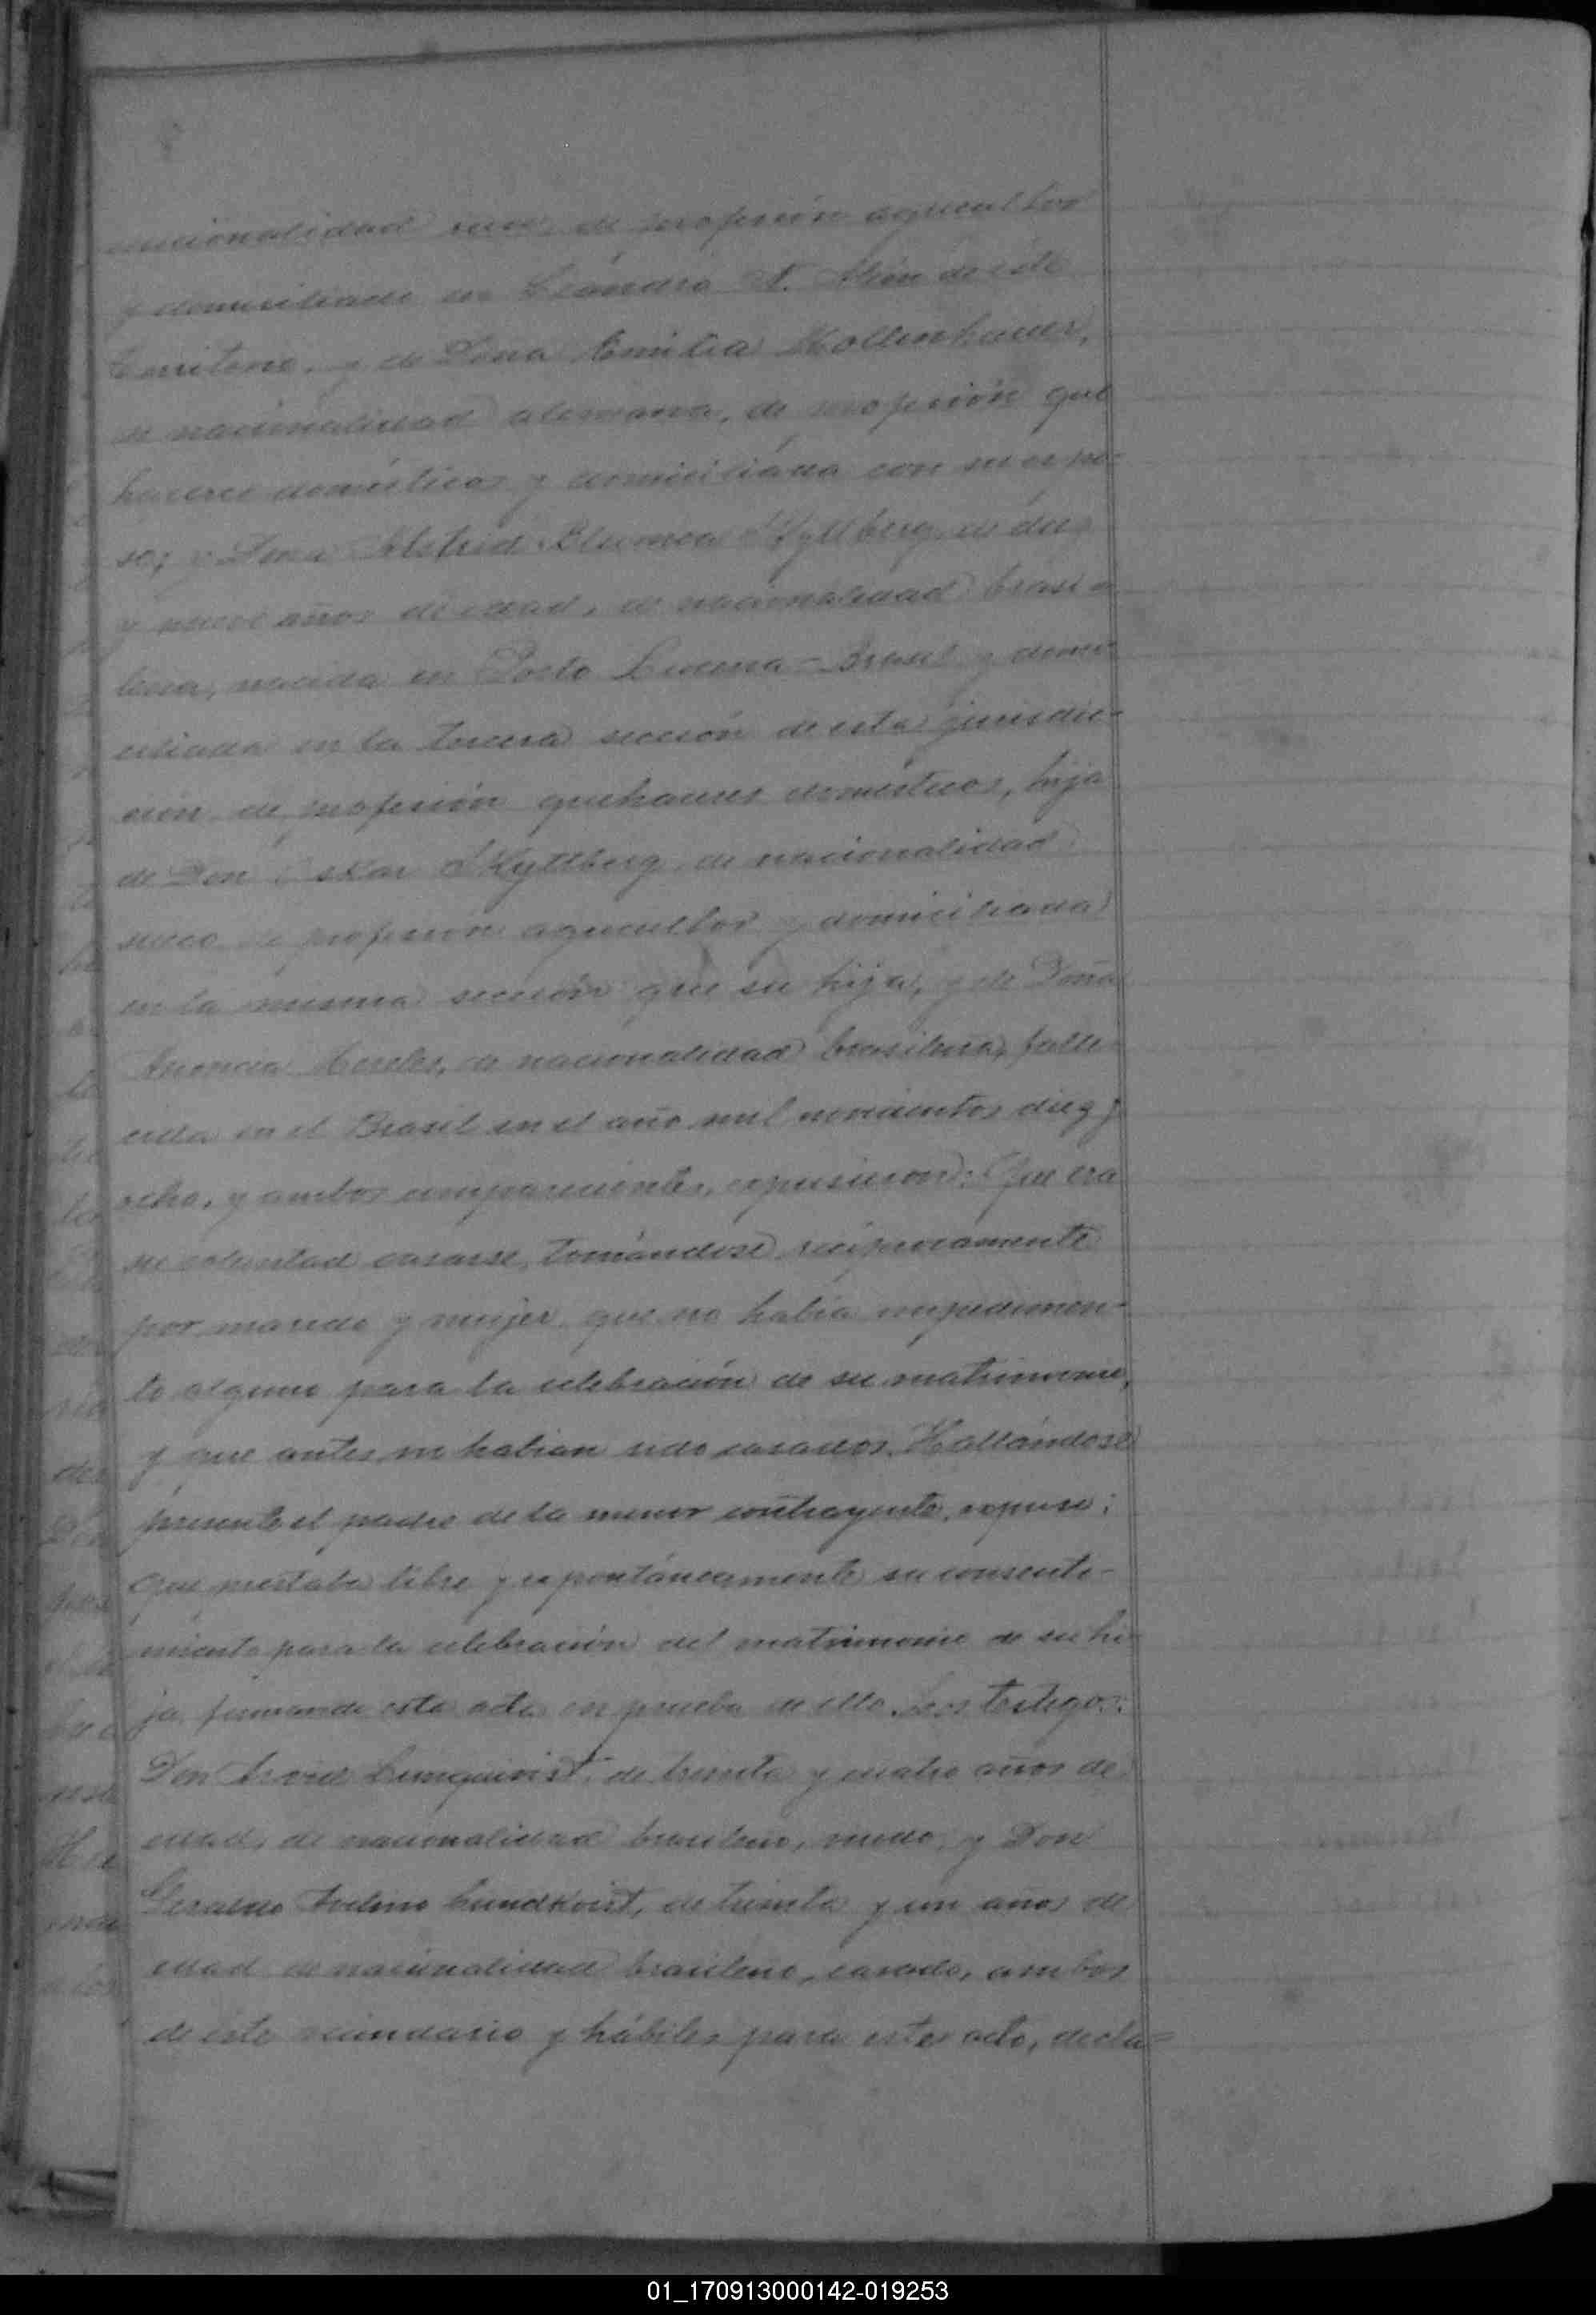 nacionalidad sueco, de profesión agricultor
y domiciliado en Leandro N. Alem de este
territorio, y de Dona Emilia Mollenhauer,
de nacionalidad alemana, de profesión que
haceres domésticos y domiciliada con su espo-
so; y Dona Astrid Blumea Kyllberg, de diez
y nueve años de edad, de nacionalidad brasi-
lera, nacida en Porto Lucena - Brasil y domi-
ciliada en la tercera sección de esta jurisdic-
ción, de profesión quehaceres domésticos, hija
de Don Oskar Kyllberg, de nacionalidad
sueco de profesión agricultor y domiciliada
en la misma sección que su hija, y de Doña
de nacionalidad brasilera, falle-
cida en el Brasil en el año mil novecientos diez y
ocho, y ambos comparecientes, expusieron: Que era
su voluntad casarse, tomándose recíprocamente
por marido y mujer, que no había impedimen-
to alguno para la celebración de su matrimonio,
y que antes no habían sido casados. Hallándose
presente el padre de la menor contrayente, expuso:
Que prestaba libre y espontáneamente su consenti-
miento para la celebración del matrimonio de su hi-
ja, firmando esta acta en prueba de ello. Los testigos:
Don de treinta y cuatro años de
edad, de nacionalidad brasilero, y Don
Geraldo Avelino Lundkvist, de treinta y un años de
edad de nacionalidad brasilero, casado, ambos
de este vecindario y hábiles para este acto, decla=
01_170913000142-019253